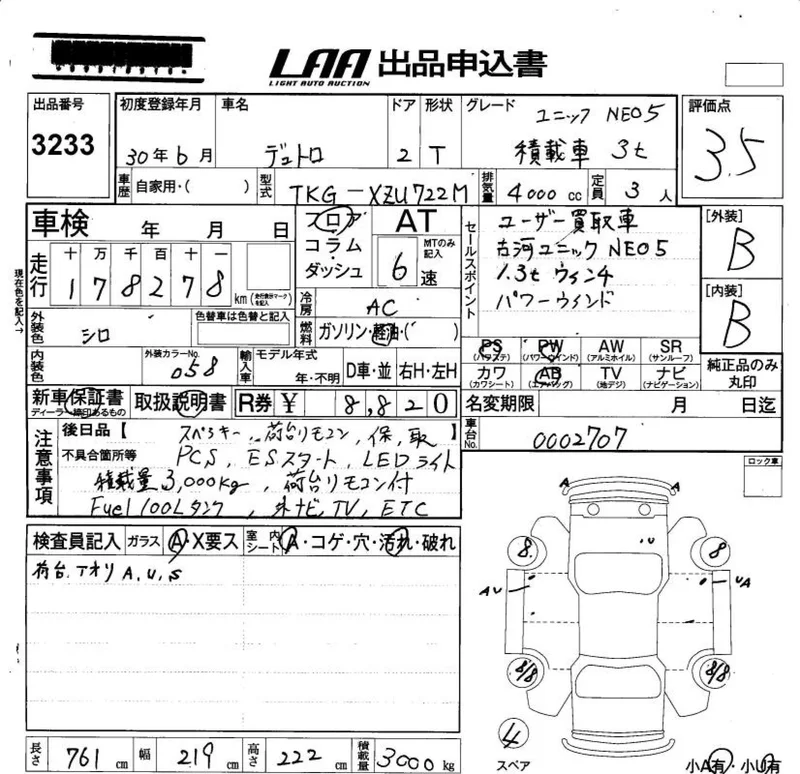 LAA 出品申込書
LIGHT AUTO AUCTION
出品番号 3233
初度登録年月 30年6月
車名 デュトロ
ドア 2
形状 T
グレード ユニック NEO5
積載車 3t
評価点 3.5
車歴 自家用・( )
型式 TKG-XZU722M
排気量 4000cc
定員 3人
車検 年 月 日
フロア
コラム
・
ダッシュ
AT
MTのみ記入
6速
セールスポイント
ユーザー買取車
古河ユニック NEO5
1.3t ウインチ
パワーウインド
[外装] B
[内装] B
現在色を記入→
走行 十 万 千 百 十 一
178278 km (走行表示マークを記入)
冷房 AC
燃料 ガソリン・軽油・( )
外装色 シロ
色替車は色替と記入
内装色
外装カラーNo. 058
輸入車 モデル年式 年・不明 D車・並 右H・左H
PS (パワステ) PW (パワーウインド) AW (アルミホイル) SR (サンルーフ)
カワ (カワシート) AB (エアバッグ) TV (地デジ) ナビ (ナビゲーション)
純正品のみ丸印
新車保証書
ディーラー締印あるもの
取扱説明書
R券 ¥ 8,820
名変期限 月 日迄
車台No. 0002707
注意事項
後日品【スペアキー、荷台リモコン、保、取】
不具合箇所等 PCS、ESスタート、LEDライト
積載量3,000kg、荷台リモコン付
Fuel 100Lタンク、外ナビ、TV、ETC
ロック車
検査員記入 ガラス A・X要ス 室内シート A・コゲ・穴・汚れ・破れ
荷台、アオリ A、U、S
A A
U
8 8
AU UA
8/8 8/8
4
スペア
小A有・小U有
長さ 761cm 幅 219cm 高さ 222cm 積載量 3000kg